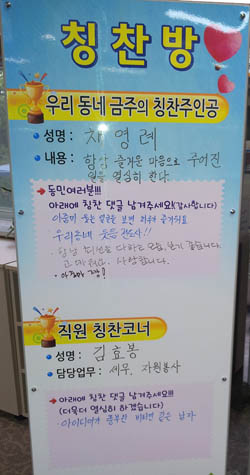 칭찬방
우리 동네 금주의 칭찬주인공
성명 : 차명례
내용 : 항상 즐거운 마음으로 주어진
일을 열심히 한다
동민여러분!!!
아래에 칭찬 댓글 남겨주세요!(감사합니다)
아줌마 웃는 얼굴을 보면 하루가 즐거워요
우리동네 웃음 전도사!!
항상 최선을 다하는 모습, 보기 좋습니다.
고마워요. 사랑합니다.
직원 칭찬코너
성명 : 김효봉
담당업무 : 세무, 자원봉사
아래에 칭찬 댓글 남겨주세요!!!
(더욱더 열심히 하겠습니다)
아이디어가 풍부한 비타민 같은 남자